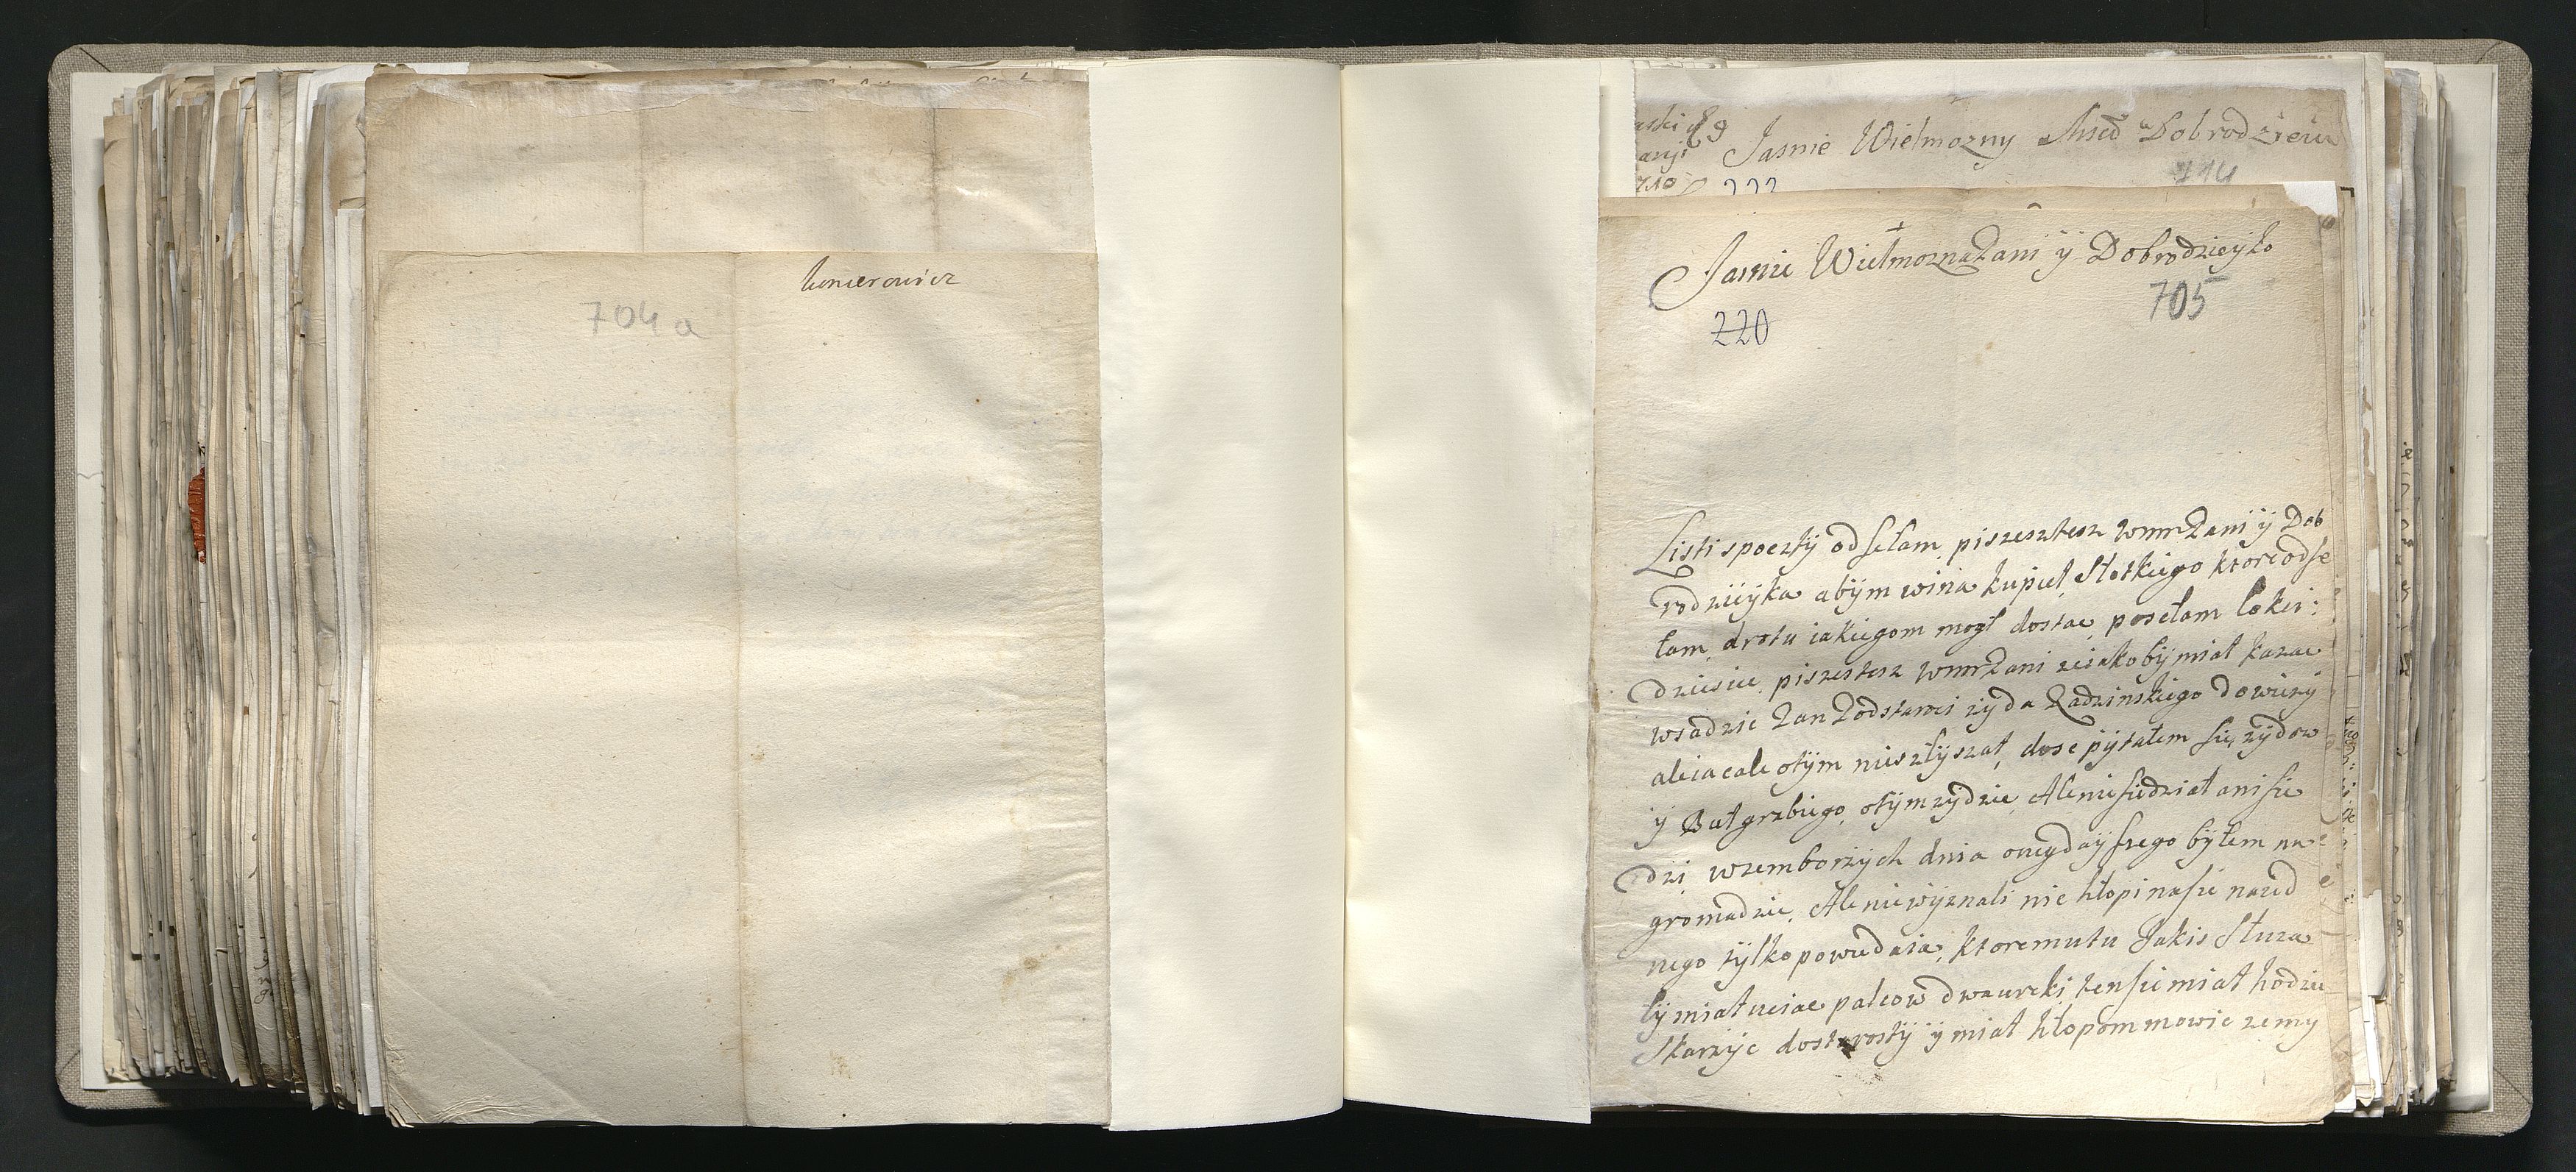 704 a
Jasnie Wielmozny Msci Dobrodzieiu
714
222
Jasnie Wielmozna Pani y Dobrodzieyko
705
220
Listi spoczty odsełam, piszesztesz wmm Pani y Dob
rodzieyka abym wina kupieł Słotkiego ktore odse
łam, drotu iakiegom mogł dostac, posełam łokci:
dziesiec, piszestesz wmm Pani ze iakoby miał kazac
wsadzic Pan Podstarosci zyda Radzinskiego do wiezy
ale ia cale otym nieszłyszał, dosc pytałem się zydow
y Bałgrzbiego, otym zydzie, Ale nie siedział ani sie
dzi, wzemborzych dnia onegdayszego byłem na
gromadzie, Ale niewyznali nic hłopi nasie nazad
nego tylko powiedaia, ktoremu tu Jakis Słuza
ly miał uciac palcow dwa u reki, ten sie miał hodzic
Skarzyc do starosty y miał hłopom mowic ze my